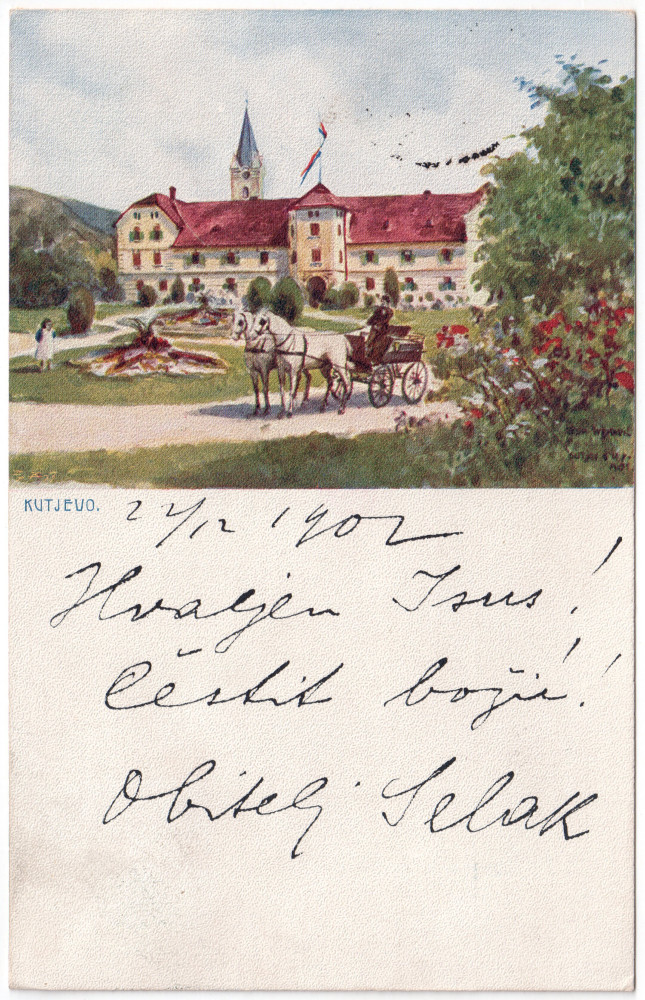 KUTJEVO.
22/12 1902
Hvaljen Isus!
Čestit božić!
Obitelj Selak